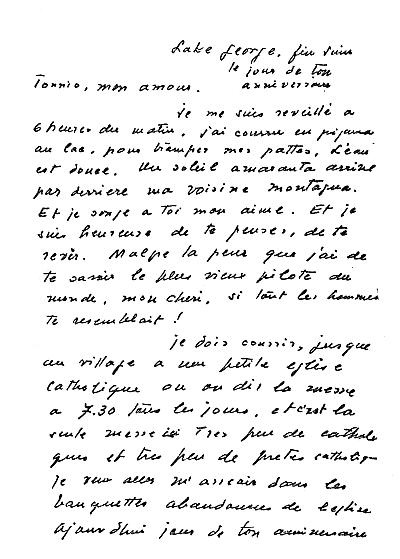 Lake George, fin juin
le jour de ton
anniversaire
Tonnio, mon amour.
je me suis reveillé a
6 heures du matin, j'ai courru en pijama
au lac, pour tramper mes pattes, L'eau
est douce. Un soleil amaranta arrive
par derriere ma voisine montagna.
Et je songe a toi mon aimé. Et je
suis heureuse de te penser, de te
rever. Malgre la peur que j'ai de
te savoir le plus vieux pilote du
monde, mon cheri, si tout les hommes
te resemblait !
je dois courrir, jusque
au village a une petite eglise
catholtique ou on dis la messe
a 7.30 tous les jours, et c'est la
seule messe ici Tres peu de catholi
ques et tres peu de pretes catholiques
je veux aller m'assoir dans les
banquettes abandonnes de l'eglise
ajourdhui jour de ton anniversaire